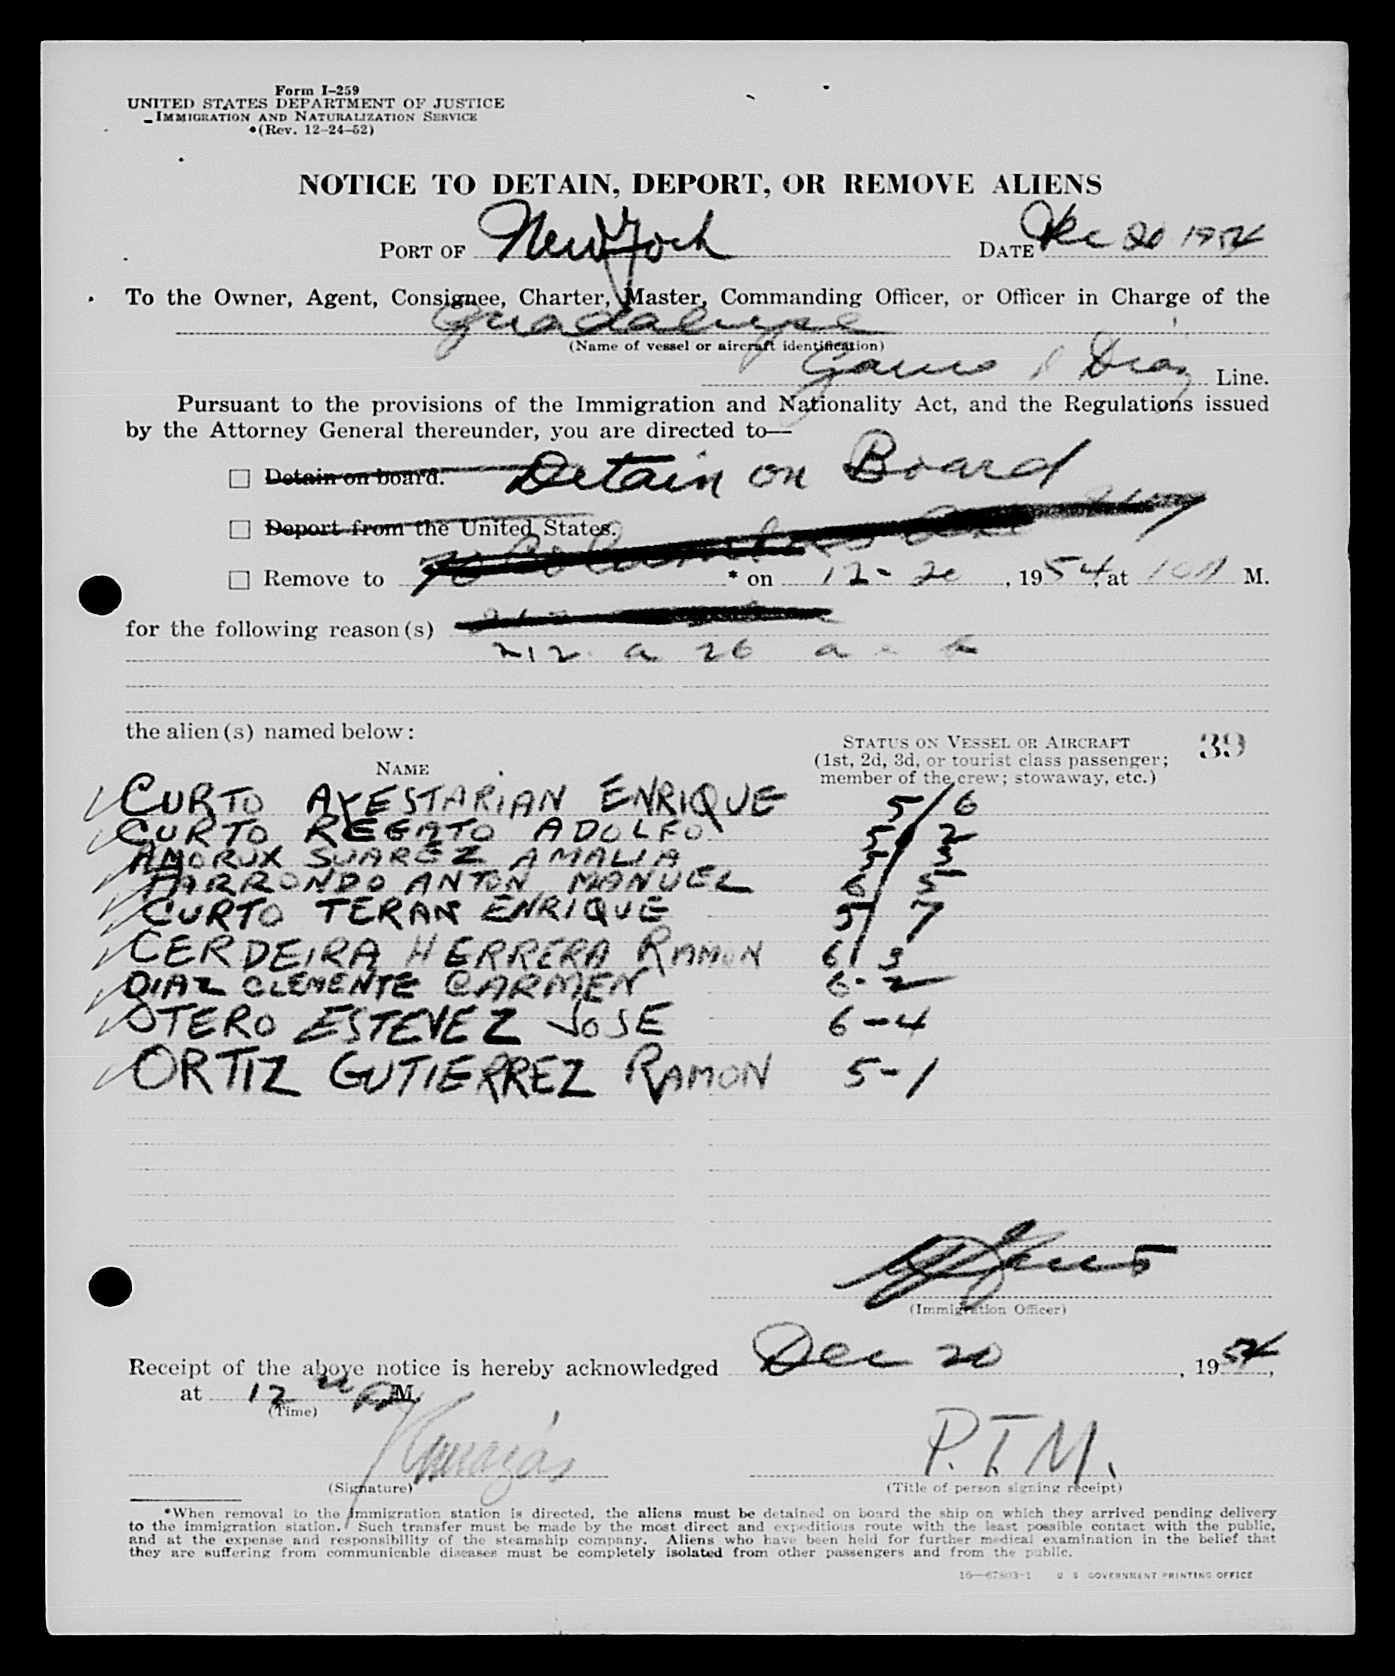 Form I-259
UNITED STATES DEPARTMENT OF JUSTICE
IMMIGRATION AND NATURALIZATION SERVICE
*(Rev. 12-24-52)
NOTICE TO DETAIN, DEPORT, OR REMOVE ALIENS
PORT OF New York DATE Dec 20 1954
To the Owner, Agent, Consignee, Charter, Master, Commanding Officer, or Officer in Charge of the
Guadalupe
(Name of vessel or aircraft identification)
Diaz Line.
Pursuant to the provisions of the Immigration and Nationality Act, and the Regulations issued
by the Attorney General thereunder, you are directed to—
☐ Detain on board. Detain on Board
☐ Deport from the United States.
☐ Remove to * on 12-20, 1954, at M.
for the following reason(s)
212 a 26
the alien(s) named below:
39
STATUS ON VESSEL OR AIRCRAFT
(1st, 2d, 3d, or tourist class passenger;
member of the crew; stowaway, etc.)
NAME
CURTO AYESTARIAN ENRIQUE 5/6
CURTO REGATO ADOLFO 5/2
AMORUX SUAREZ AMALIA 5/3
FARRONDO ANTON MANUEL 6/5
CURTO TERAN ENRIQUE 5/7
CERDEIRA HERRERA RAMON 6/3
DIAZ CLEMENTE CARMEN 6-2
OTERO ESTEVEZ JOSE 6-4
ORTIZ GUTIERREZ RAMON 5-1
(Immigration Officer)
Receipt of the above notice is hereby acknowledged Dec 20, 1954,
at 12 M.
(Time)
P.T.M.
(Signature) (Title of person signing receipt)
*When removal to the immigration station is directed, the aliens must be detained on board the ship on which they arrived pending delivery
to the immigration station. Such transfer must be made by the most direct and expeditious route with the least possible contact with the public,
and at the expense and responsibility of the steamship company. Aliens who have been held for further medical examination in the belief that
they are suffering from communicable diseases must be completely isolated from other passengers and from the public.
16—67803-1 U S GOVERNMENT PRINTING OFFICE